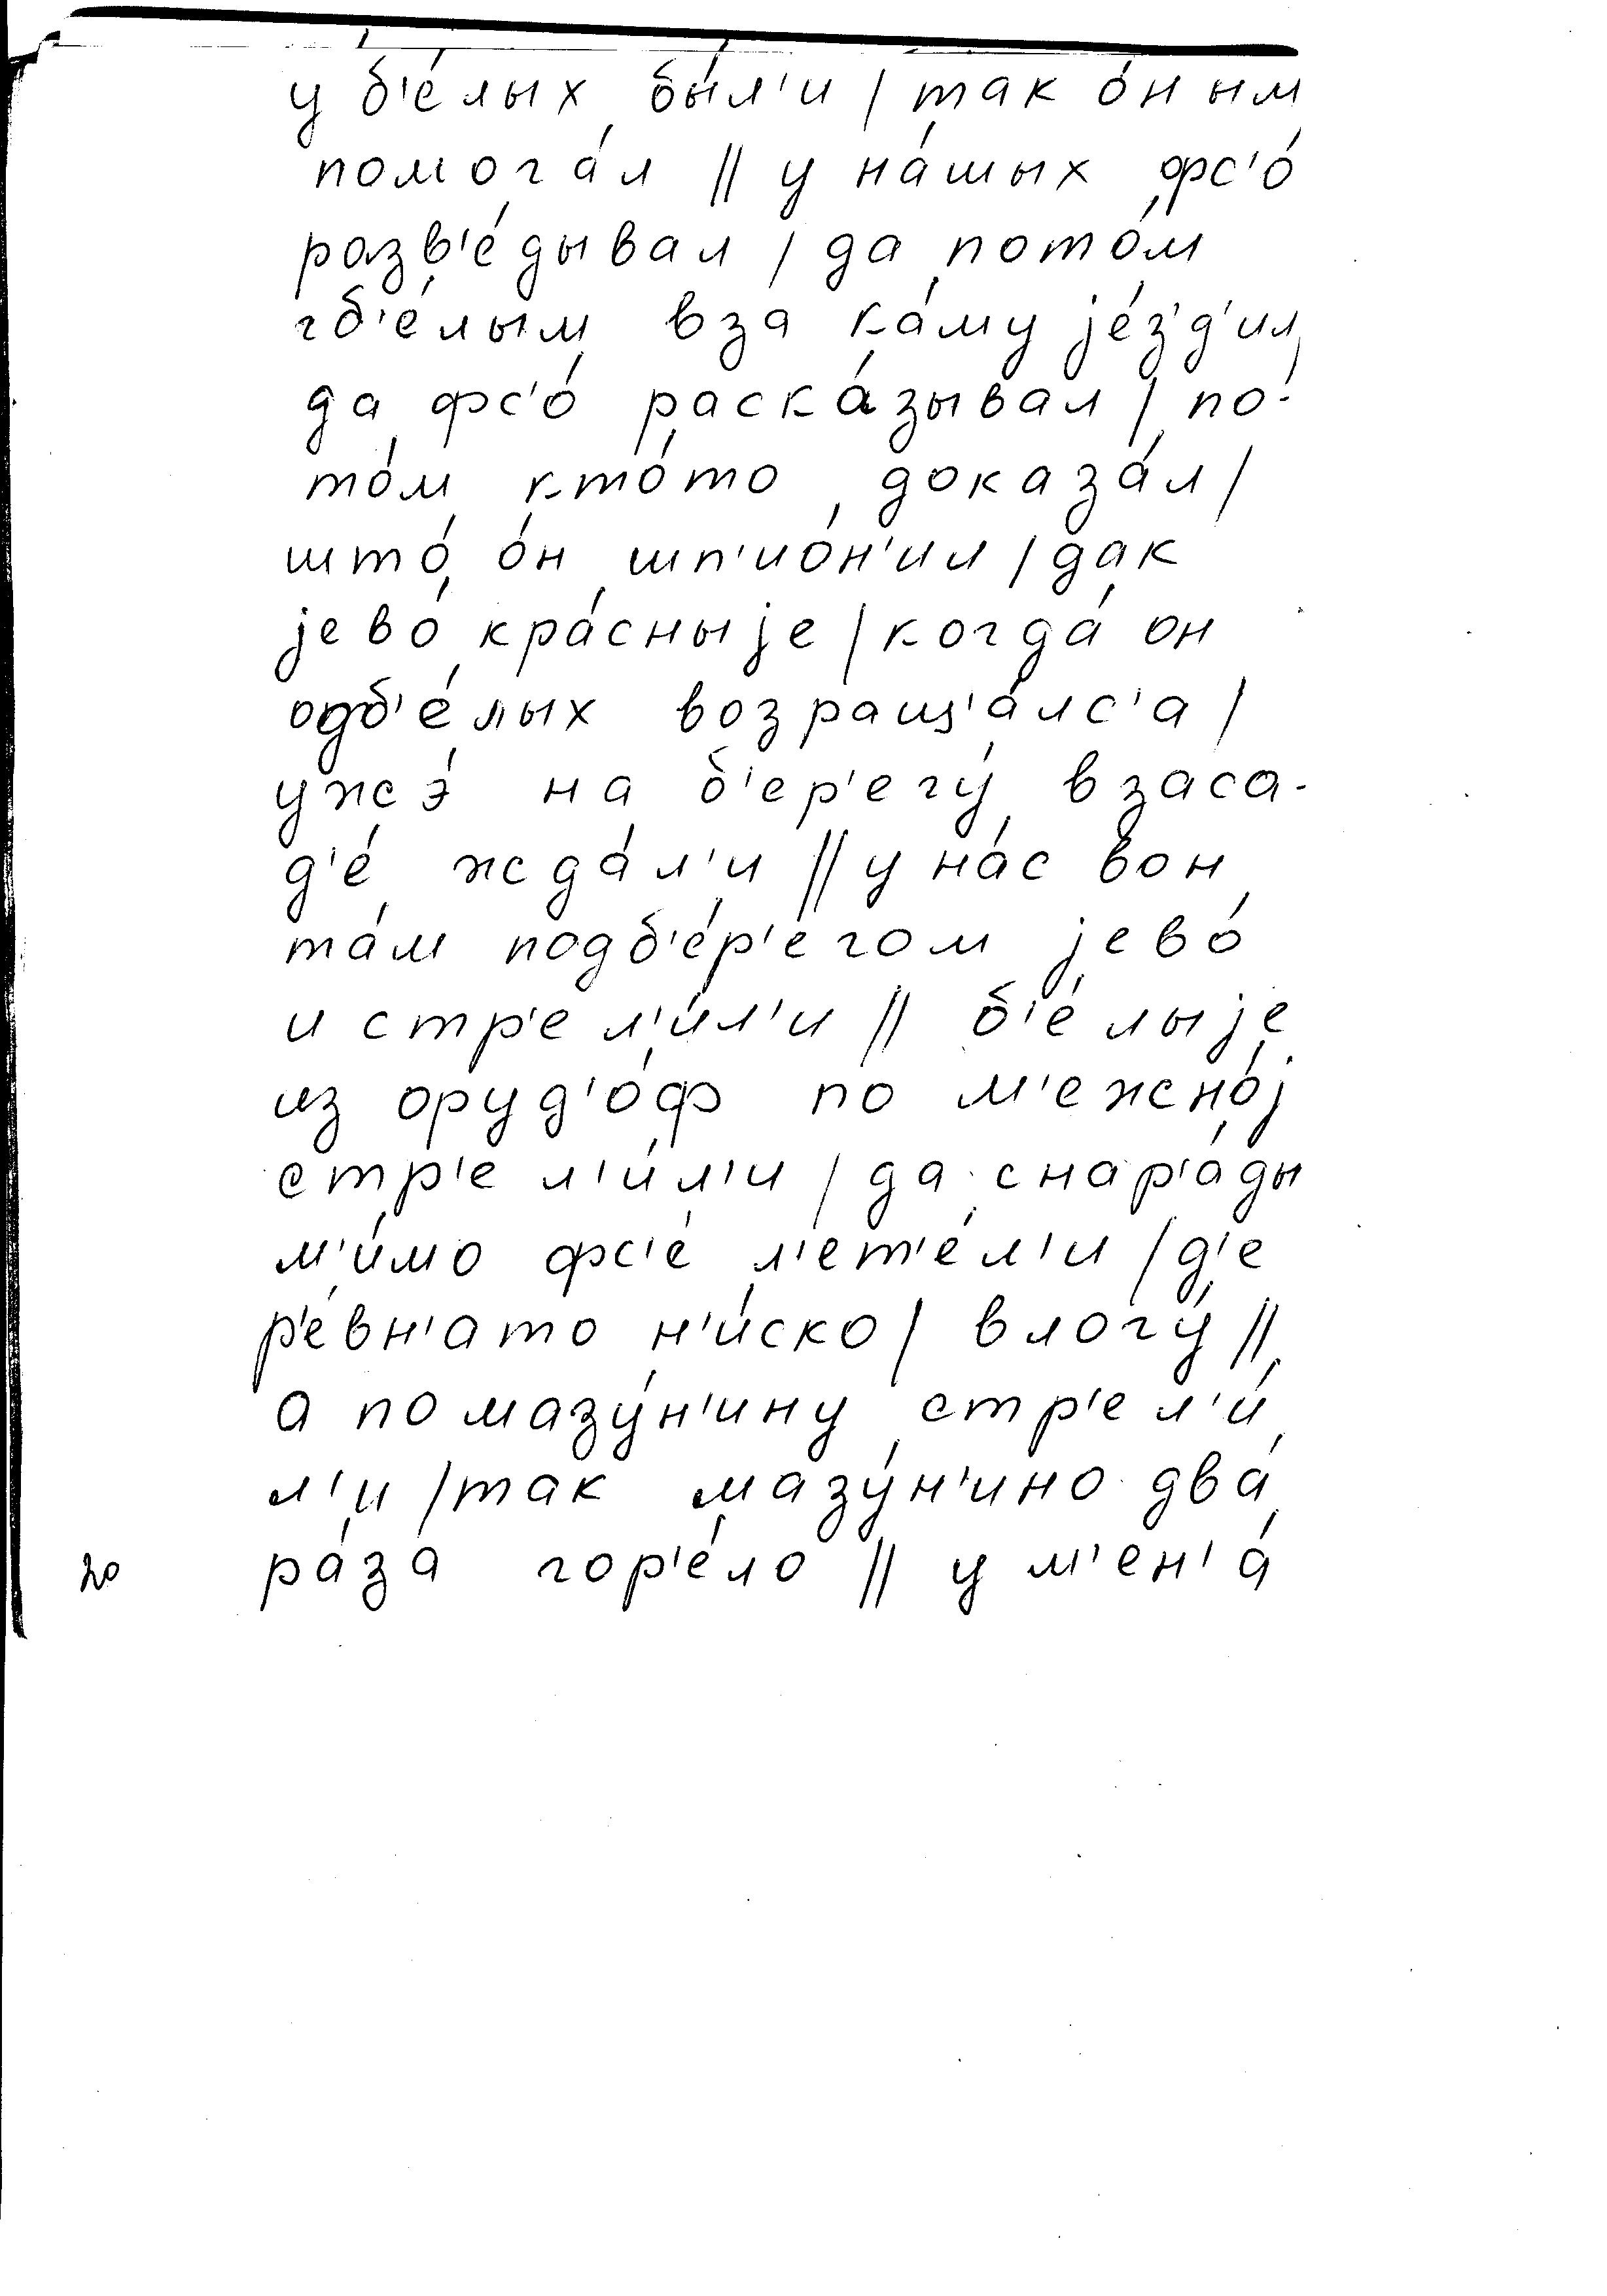 у б'е́лых бы́л'и / так о́н ым
помога́л // у на́шых фс'о́
разв'е́дывал / да пото́м
гб'е́лым вза ка́му је́з'д'ил/
да фс'о́ раска́зывал / по-
то́м кто́то доказа́л /
што́ о́н шп'ио́н'ил / дак
јево́ кра́сныје / когда́ он
одб'е́лых возращ'а́лс'а /
ужэ́ на б'ер'егу́ взаса-
д'е́ жда́л'и // у на́с вон
та́м подб'е́р'егом јево́
и стр'ел'и́л'и // б'е́лыје
из оруд'о́ф по м'ежно́ј
стр'ел'и́л'и / да снар'а́ды
м'и́мо фс'е́ л'ет'е́л'и / д'е
р'е́вн'ато н'и́ско / влогу́ //
а по мазу́н'ину стр'ел'и́
л'и / так мазу́н'ино два́
20 ра́за гор'е́ло // у м'ен'а́